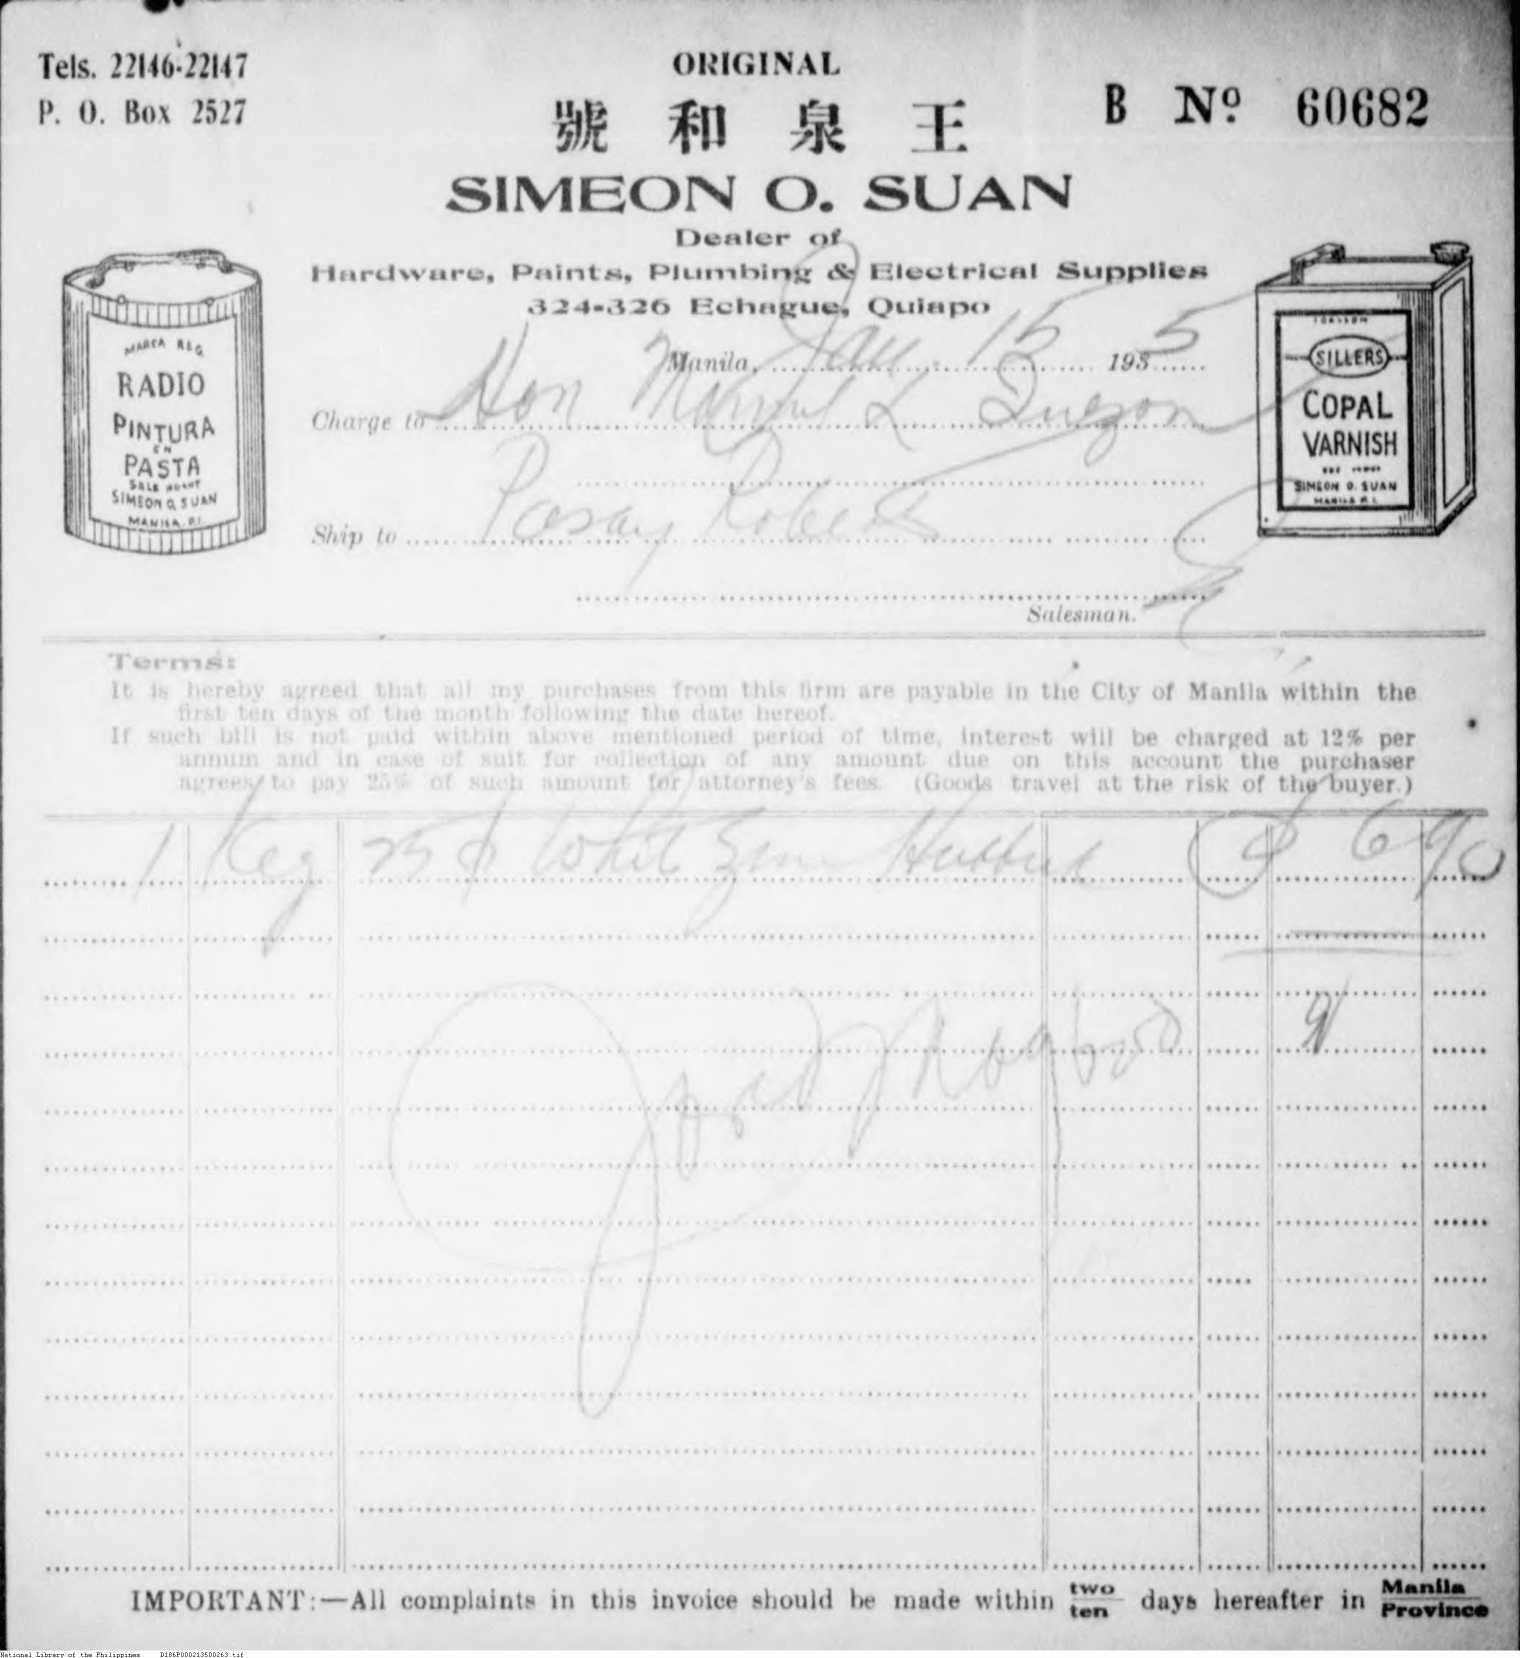 Tels. 22146-22147
P. O. Box 2527
ORIGINAL
B Nº 60682
號 和 泉 王
SIMEON O. SUAN
Dealer of
Hardware, Paints, Plumbing & Electrical Supplies
324-326 Echague, Quiapo
Manila, Jan. 15 1935
Charge to Hon Manuel L Quezon
Ship to Pasay Roberts
Salesman.
MARCA REG
RADIO
PINTURA
EN
PASTA
SALE AGENT
SIMEON O. SUAN
MANILA, P.I.
1 GALLON
SILLERS
COPAL
VARNISH
SIMEON O. SUAN
MANILA P.I.
Terms:
It is hereby agreed that all my purchases from this firm are payable in the City of Manila within the
first ten days of the month following the date hereof.
If such bill is not paid within above mentioned period of time, interest will be charged at 12% per
annum and in case of suit for collection of any amount due on this account the purchaser
agrees to pay 25% of such amount for attorney's fees. (Goods travel at the risk of the buyer.)
1 Keg 25 White Zinc 6 90
IMPORTANT:—All complaints in this invoice should be made within two ten days hereafter in Manila Province
National Library of the Philippines D186P000213500263.tif